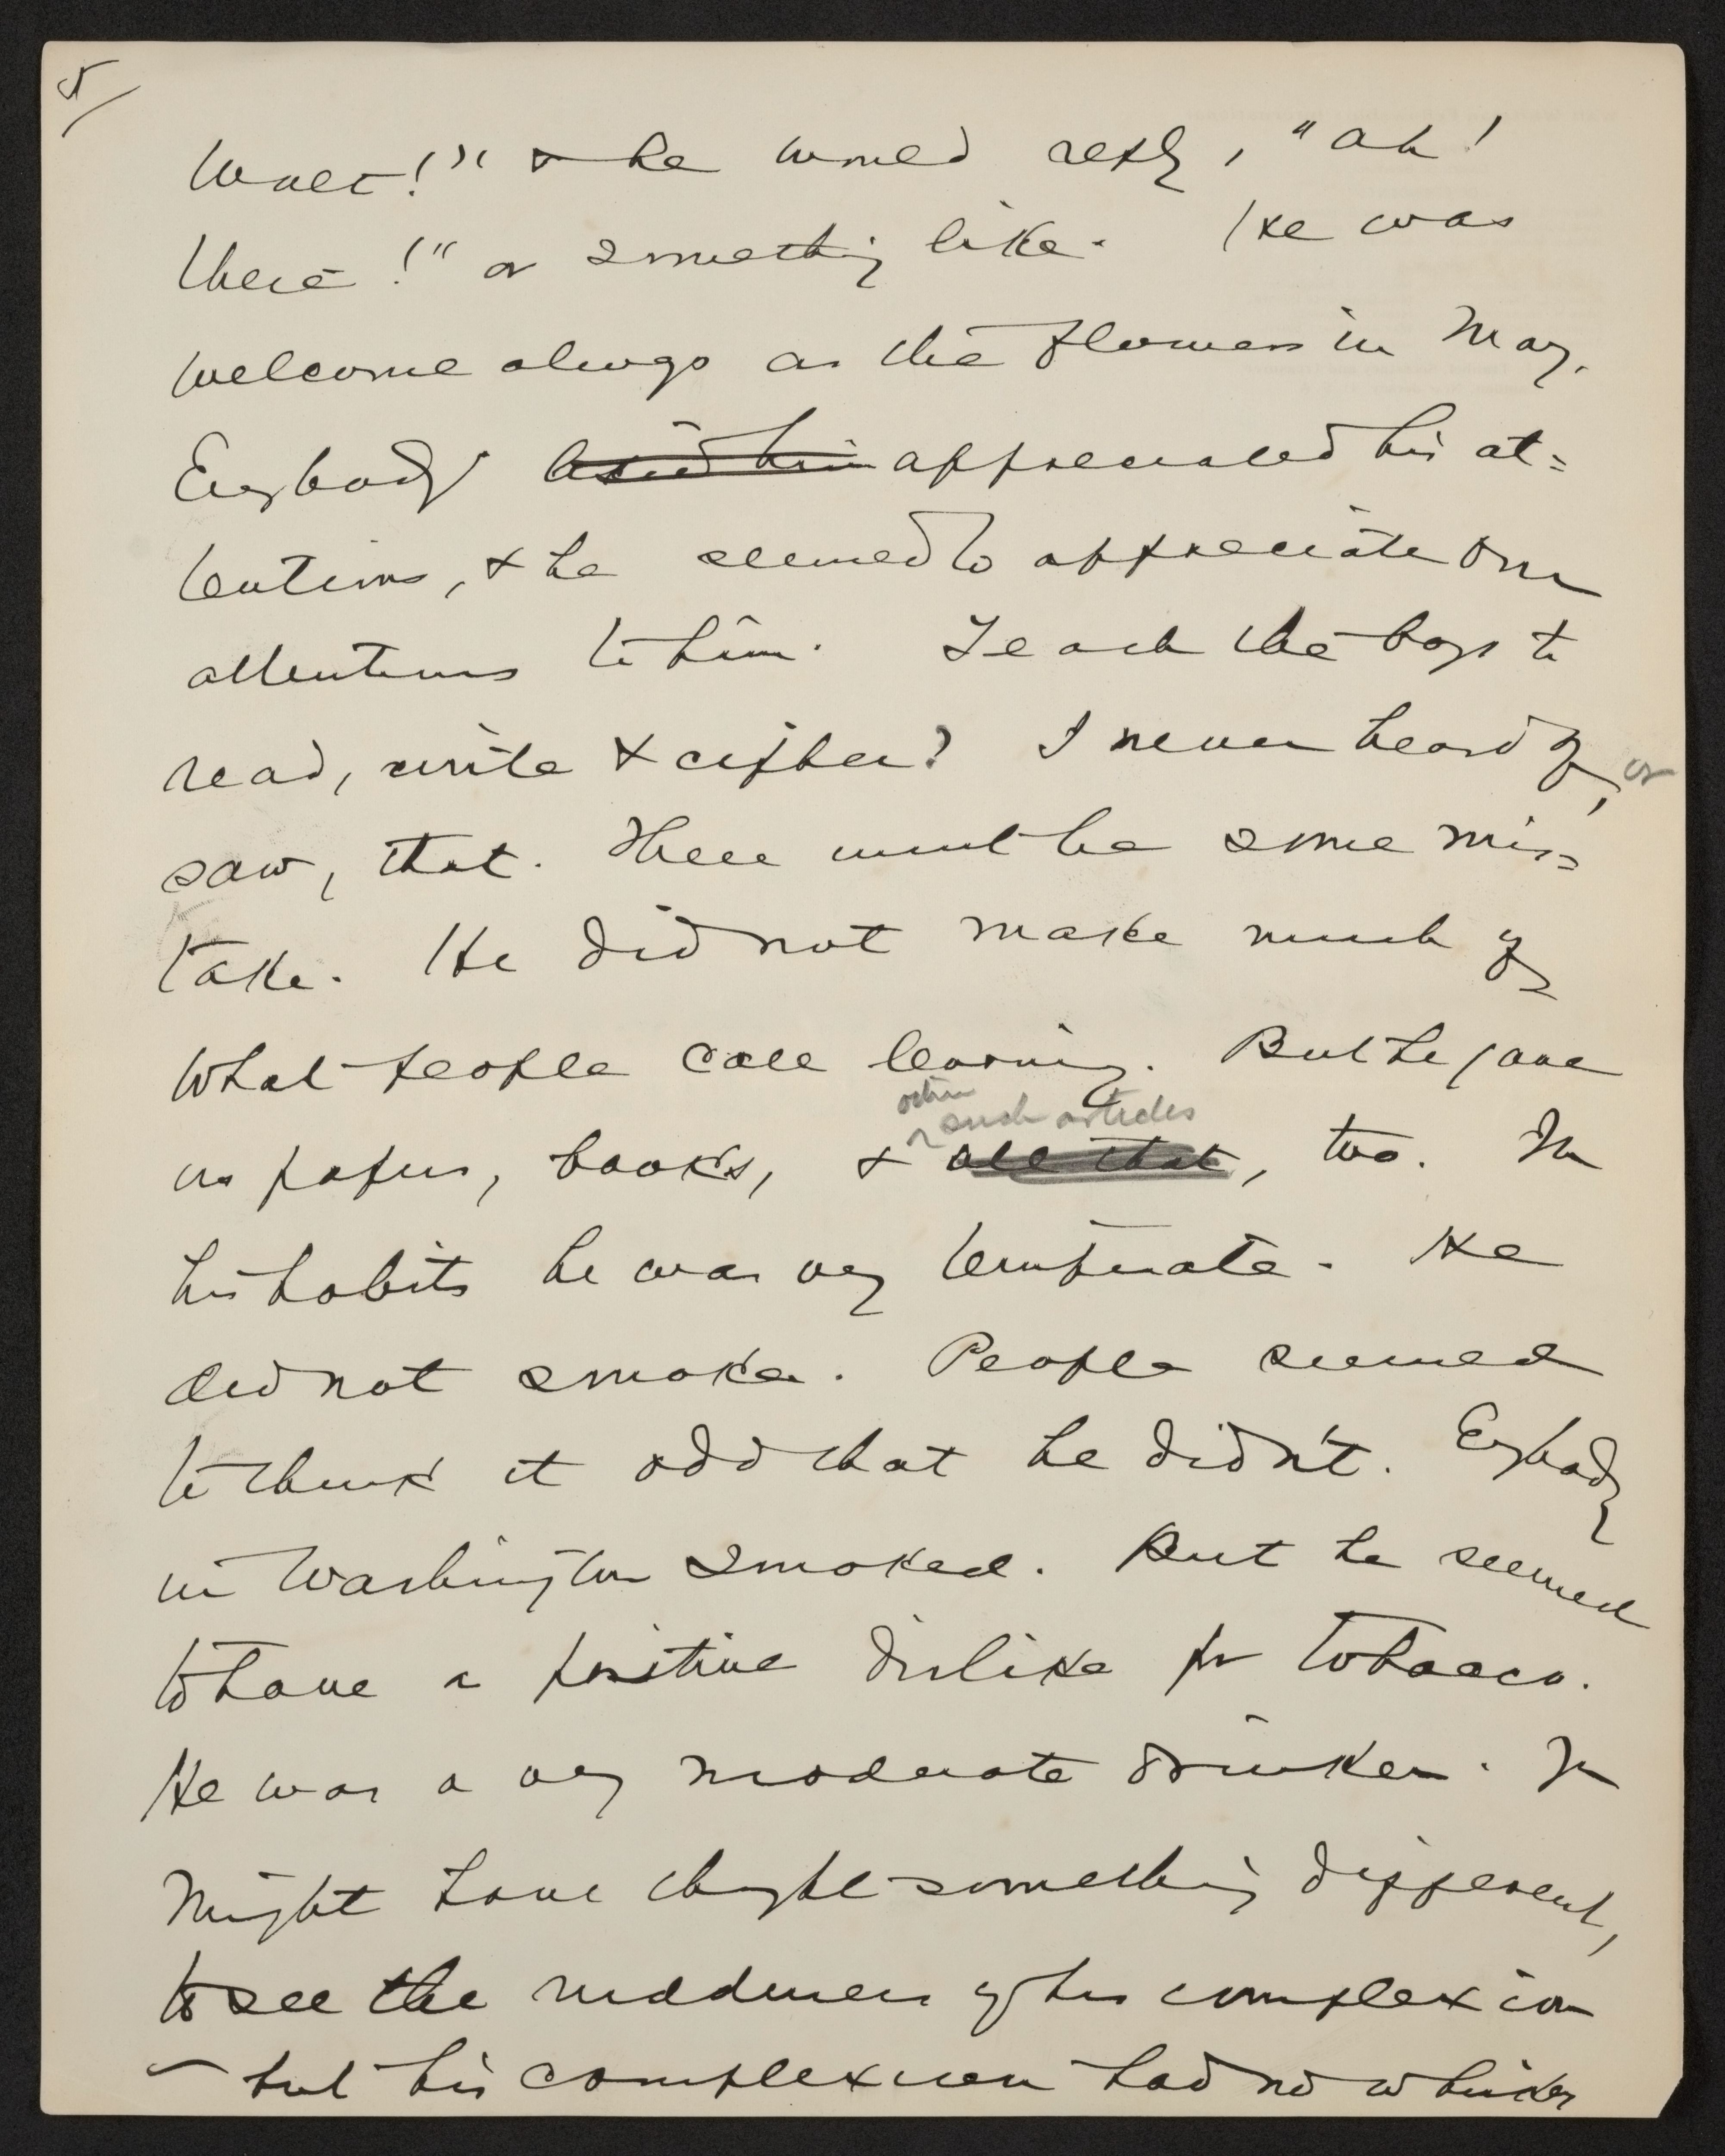 5/
Walt!" & he would reply, "Ah!
there!" or something like. He was
welcome always as the flowers in May.
Everybody appreciated his at=
tentions, & he seemed to appreciate our
attentions to him. Teach the boys to
read, write & cipher? I never heard of, or
saw, that. There must be some mis=
take. He did not make much of
what people call learning. But he gave
us papers, books,
other
such articles
& all that, too. In
his habits he was very temperate. He
did not smoke. People seemed
to think it odd that he didn't. Everybody
in Washington smoked. But he seemed
to have a positive dislike for tobacco.
He was a very moderate drinker. You
might have thought something different,
to see the ruddiness of his complexion
– but his complexion had no whisky